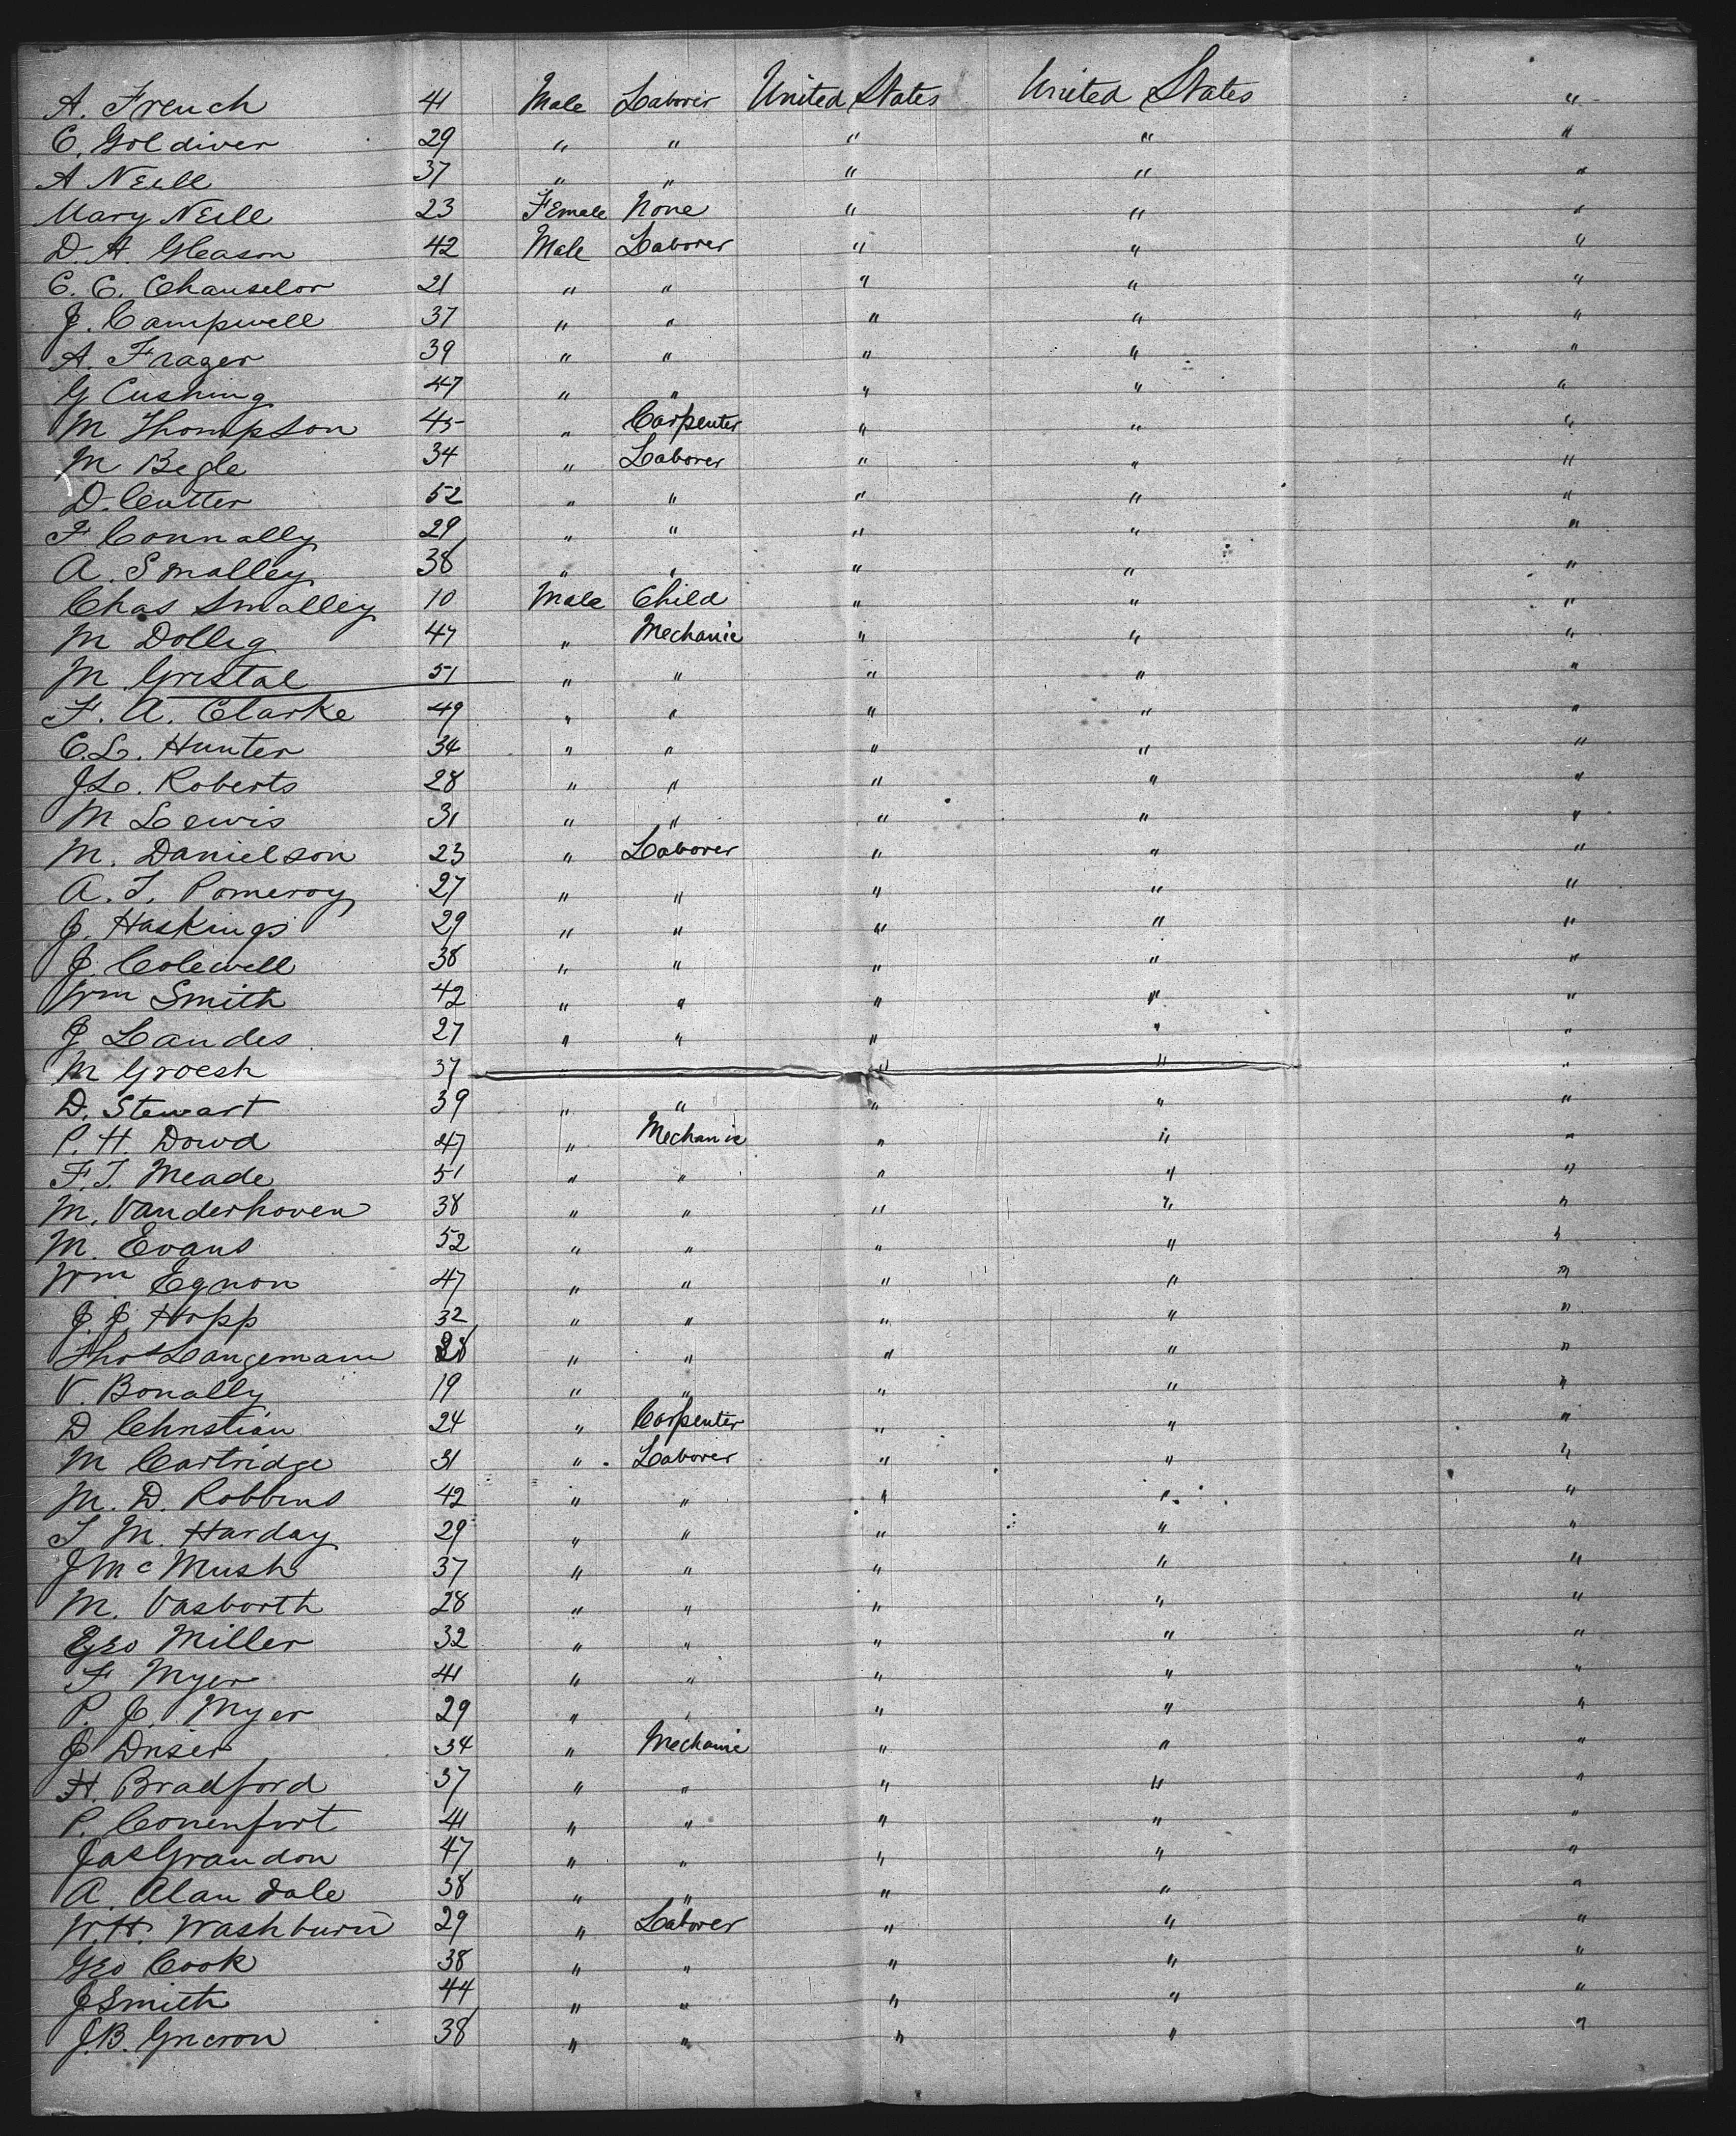 A. French 41 Male Laborer United States United States "
C. Goldiver 29 " " " " "
A Neill 37 " " " " "
Mary Neill 23 Female None " " "
D. A. Gleason 42 Male Laborer " " "
C. C. Chanselor 21 " " " " "
J. Campwell 37 " " " " "
A. Frazer 39 " " " " "
G Cushing 47 " " " " "
M Thompson 45 " Carpenter " " "
M Begle 34 " Laborer " " "
D. Cutter 52 " " " " "
F Connally 29 " " " " "
A. Smalley 38 " " " " "
Chas Smalley 10 Male Child " " "
M Dolleg 47 " Mechanic " " "
M Gristal 51 " " " " "
F. A. Clarke 49 " " " " "
C. L. Hunter 34 " " " " "
J. L. Roberts 28 " " " " "
M Lewis 31 " " " " "
M. Danielson 23 " Laborer " " "
A. T. Pomeroy 27 " " " " "
J. Haskings 29 " " " " "
J. Colewell 38 " " " " "
Wm Smith 42 " " " " "
J Landes 27 " " " " "
M Groesh 37 " " "
D. Stewart 39 " " " " "
P. H. Dowd 47 " Mechanic " " "
F. T. Meade 51 " " " " "
M. Vanderhoven 38 " " " " "
M. Evans 52 " " " " "
Wm Egnon 47 " " " " "
J. J. Hopp 32 " " " " "
Thos Langemann 28 " " " " "
V. Bonally 19 " " " " "
D Christian 24 " Carpenter " " "
M Cartridge 31 " Laborer " " "
M. D. Robbins 42 " " " " "
T. M. Harday 29 " " " " "
J McMush 37 " " " " "
M. Vasborth 28 " " " " "
Geo Miller 32 " " " " "
F Myer 41 " " " " "
P. J. Myer 29 " " " " "
J Driser 34 " Mechanic " " "
H. Bradford 37 " " " " "
P. Conenfort 41 " " " " "
Jas Grandon 47 " " " " "
A. Alandale 38 " " " " "
W. H. Washburn 29 " Laborer " " "
Geo Cook 38 " " " " "
J Smith 44 " " " " "
J. B. Grieron 38 " " " " "